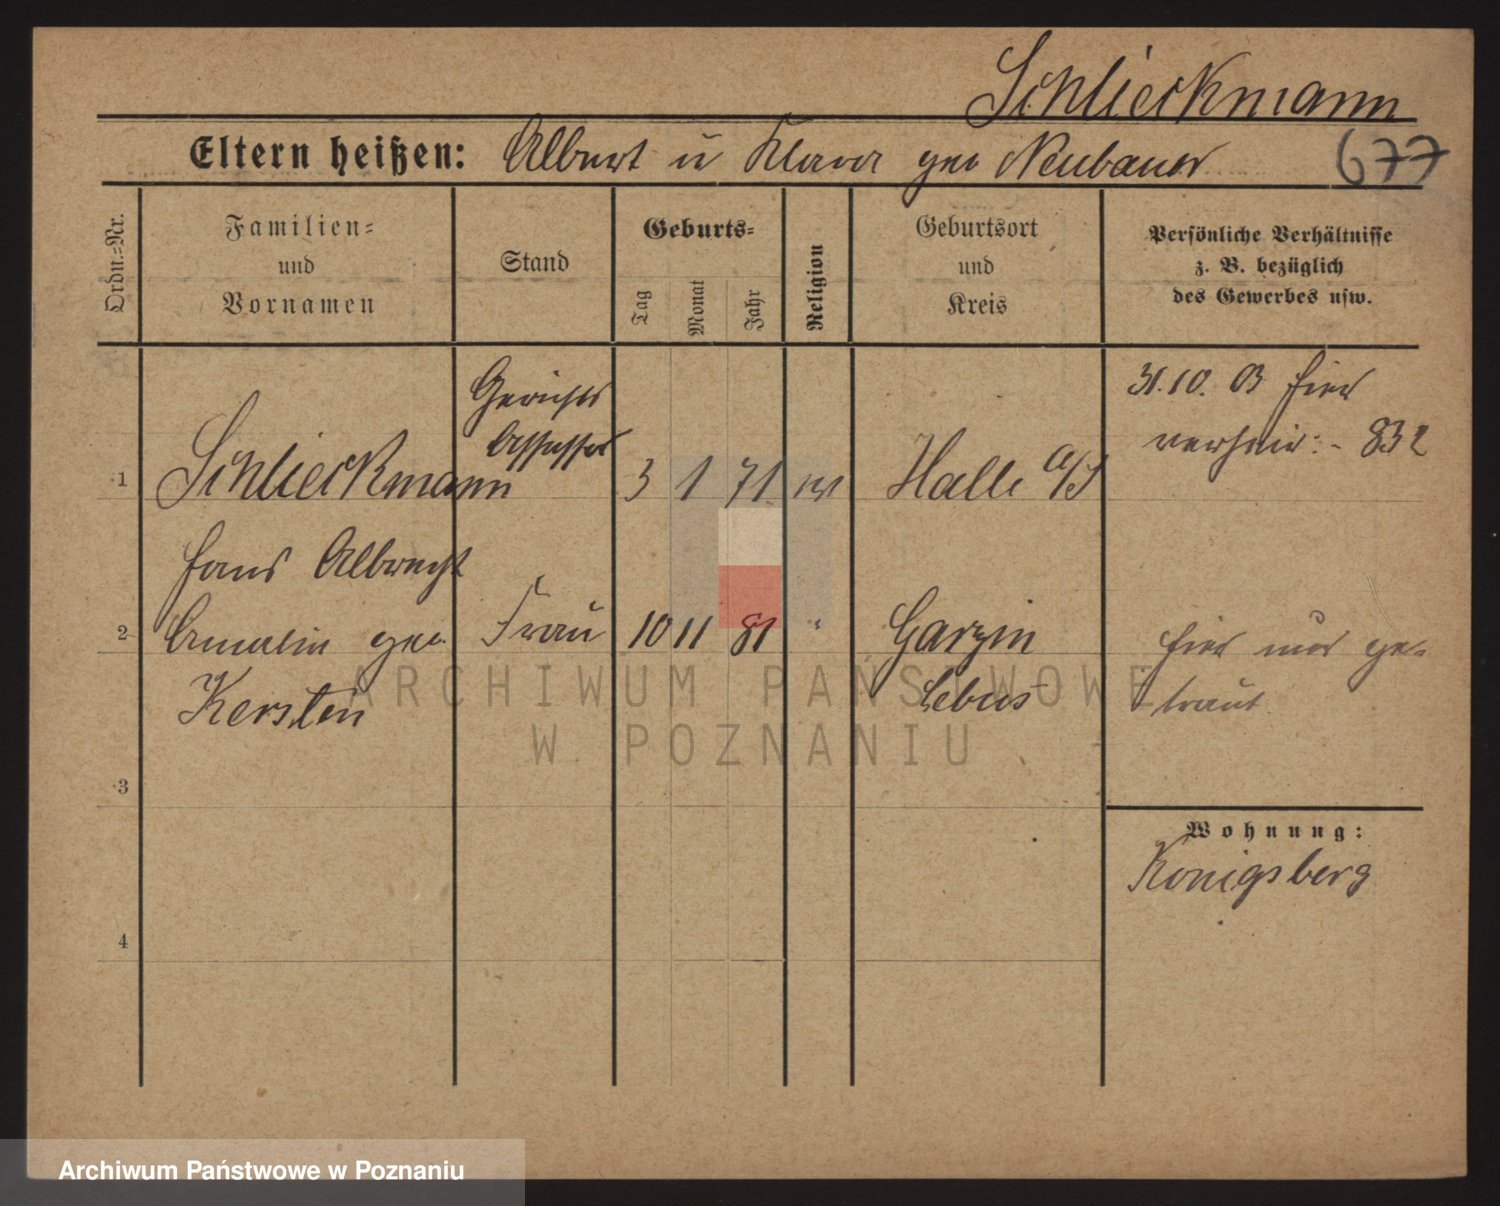 Schlieckmann
Eltern heißen: Albert u Klara geb Neubauer 677
Ordn.=Nr.
Familien=
und
Vornamen
Stand
Geburts=
Tag
Monat
Jahr
Religion
Geburtsort
und
Kreis
Persönliche Verhältnisse
z. B. bezüglich
des Gewerbes usw.
1 Schlieckmann
Hans Albrecht
Gerichts
Assessor
3 1 71
Halle a/S
31.10. 03 hier
verheir: - 832
2
geb.
Kersten
Frau
10 11 81
"
Garzin
Lebus
hier nur ge-
traut
3
4
Wohnung:
Königsberg
ARCHIWUM PAŃSTWOWE
W POZNANIU
Archiwum Państwowe w Poznaniu